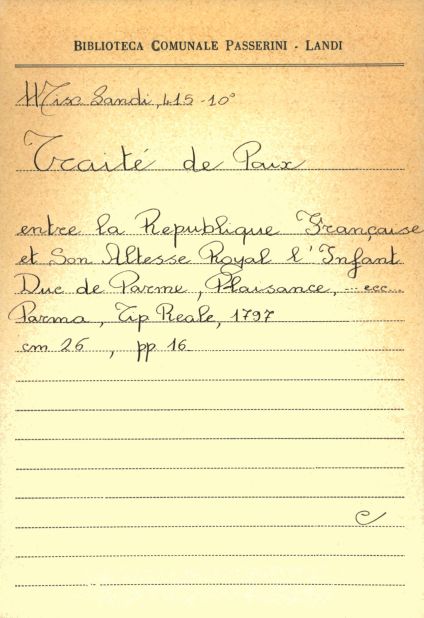 BIBLIOTECA COMUNALE PASSERINI - LANDI
Misc Landi, 415-10°
Traité de Paix
entre la Republique Française
et Son Altesse Royal l'Infant
Duc de Parme, Plaisance, ... ecc...
Parma, Tip Reale, 1797
cm 26, pp 16
C